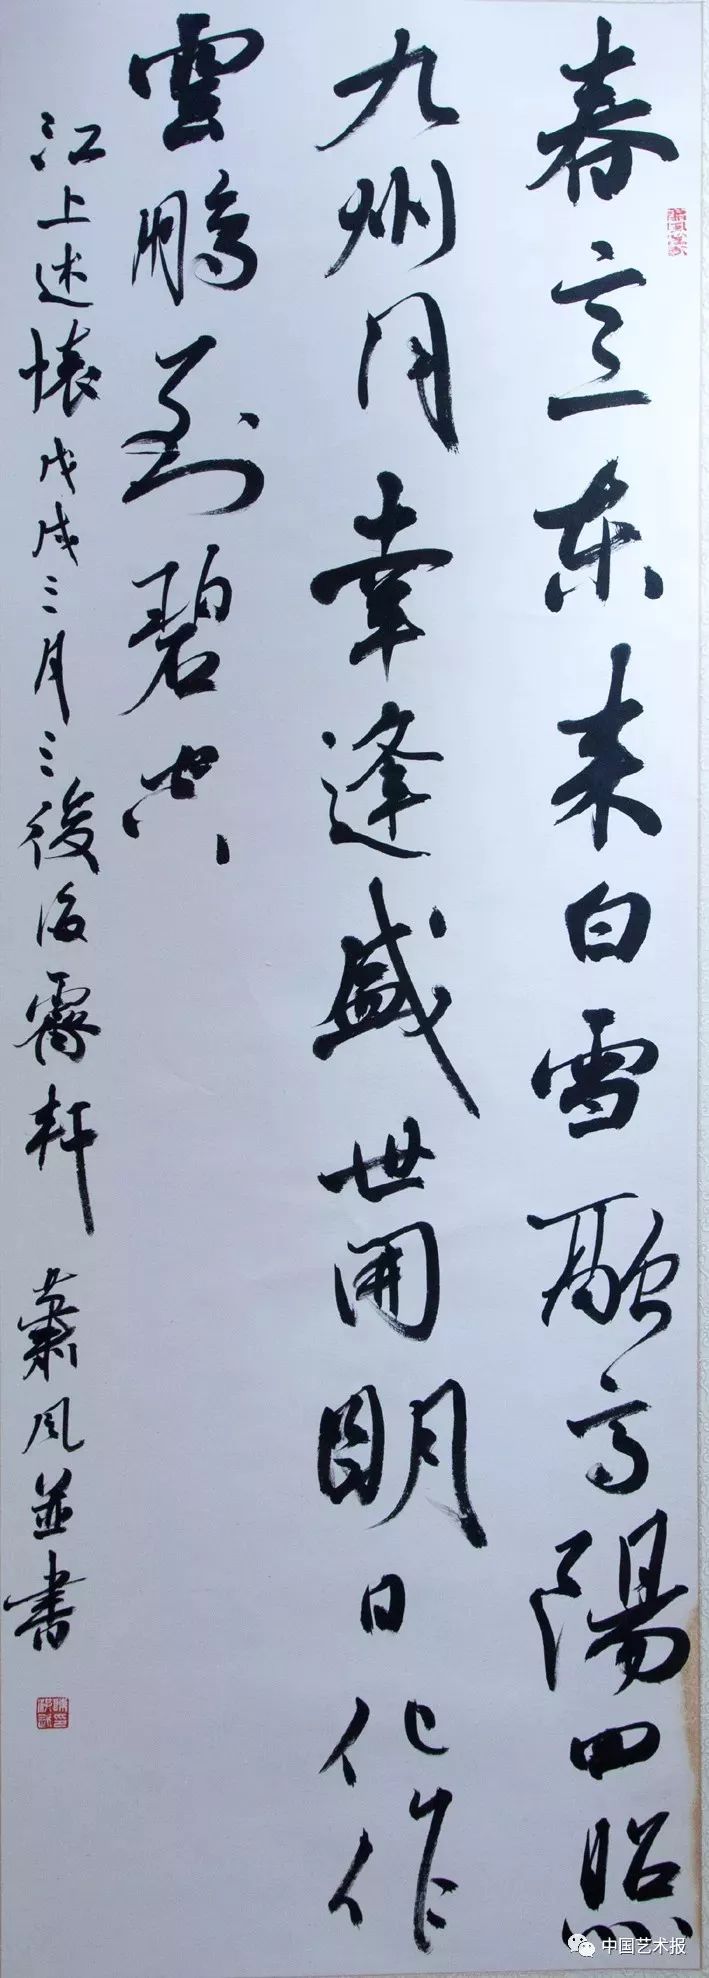 春立东来白雪融高陽四照
九州同幸逢盛世开明日化作
雲鹏到碧空
江上述懐戊戌三月三後海霽軒 萧风並書
中国艺术报